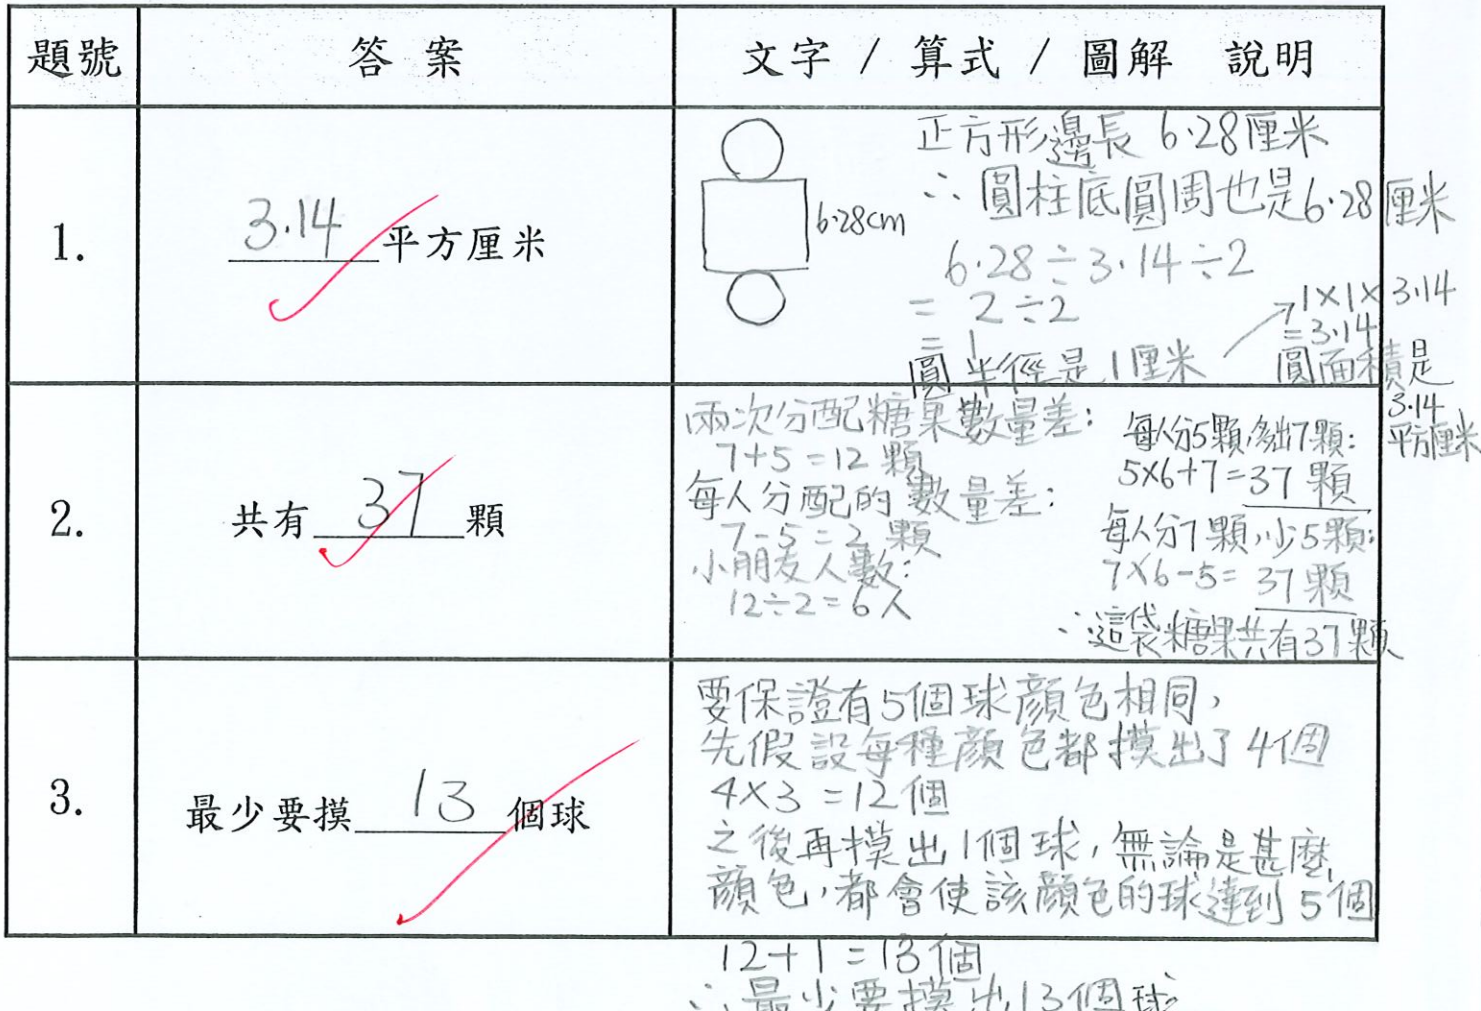 題號 答案 文字 / 算式 / 圖解 說明
1.
3.14 平方厘米
6.28cm
正方形邊長 6.28厘米
∴ 圓柱底圓周也是6.28厘米
6.28÷3.14÷2
= 2÷2
= 1
圓半徑是1厘米
1×1×3.14
=3.14
圓面積是
3.14
平方厘米
2.
共有 37 顆
兩次分配糖果數量差:
7+5=12 顆
每人分配的數量差:
7-5=2 顆
小朋友人數:
12÷2=6人
每人分5顆,多出7顆:
5×6+7=37 顆
每人分7顆,少5顆:
7×6-5= 37 顆
∴這袋糖果共有37顆
3.
最少要摸 13 個球
要保證有5個球顏色相同,
先假設每種顏色都摸出了4個
4×3 =12個
之後再摸出1個球,無論是甚麼
顏色,都會使該顏色的球達到5個
12+1=13個
∴最少要摸出13個球